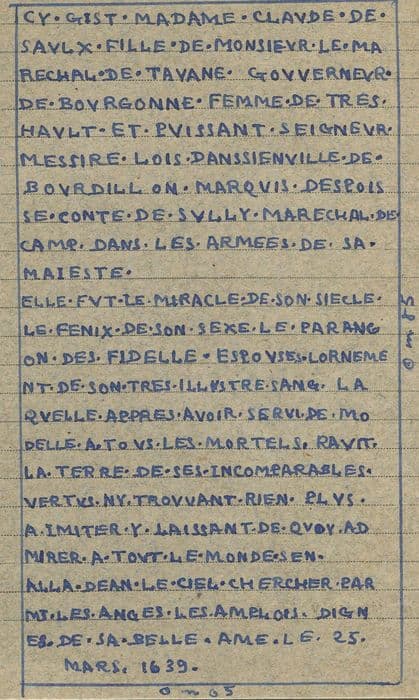 CY·GIST·MADAME·CLAVDE·DE·
SAVLX·FILLE·DE·MONSIEVR·LE·MA
RECHAL·DE·TAVANE· GOVVERNEVR·
DE·BOVRGONNE· FEMME·DE·TRES·
HAVLT·ET·PVISSANT·SEIGNEVR·
MESSIRE·LOIS·DANSSIENVILLE·DE·
BOVRDILL ON·MARQVIS·DESPOIS
SE·CONTE·DE·SVLLY·MARECHAL·DE
CAMP·DANS·LES·ARMEES·DE·SA·
MAIESTE·
ELLE·FVT·LE·MIRACLE·DE·SON·SIECLE·
LE·FENIX·DE·SON·SEXE·LE·PARANG
ON·DES·FIDELLE·ESPOVSES·LORNEME
NT·DE·SON·TRES·ILLVSTRE·SANG· LA
QVELLE·APPRES·AVOIR·SERVI·DE·MO
DELLE·A·TOVS·LES·MORTELS·RAVIT·
LA·TERRE·DE·SES·INCOMPARABLES·
VERTVS·NY·TROVVANT·RIEN·PLVS·
A·IMITER·Y·LAISSANT·DE·QVOY·AD
MIRER·A·TOVT·LE·MONDE·SEN·
ALLA·DEAN·LE·CIEL·CHERCHER·PAR
MI·LES·ANGES·LES·AMPLOIS·DIGN
ES·DE·SA·BELLE·AME·LE·25·
MARS·1639·
0m65